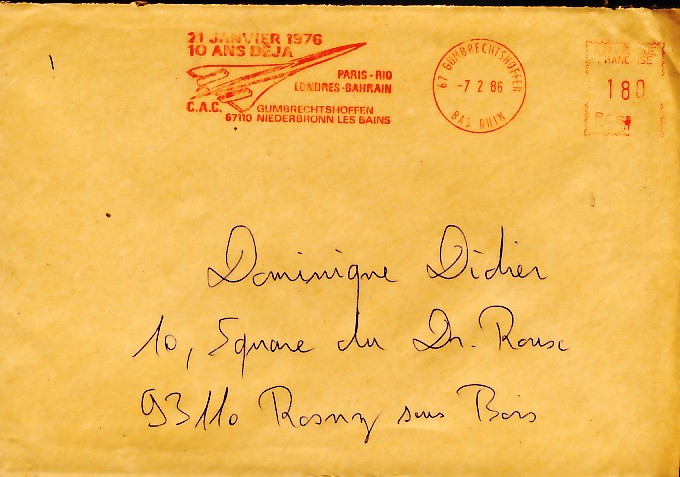 21 JANVIER 1976
10 ANS DÉJA
PARIS - RIO
LONDRES - BAHRAIN
C.A.C. GUMBRECHTSHOFFEN
67110 NIEDERBRONN LES BAINS
67 GUMBRECHTSHOFFEN
-7 2 86
BAS RHIN
FRANÇAISE
180
Dominique Didier
10, Square du Dr. Roux
93110 Rosny sous Bois